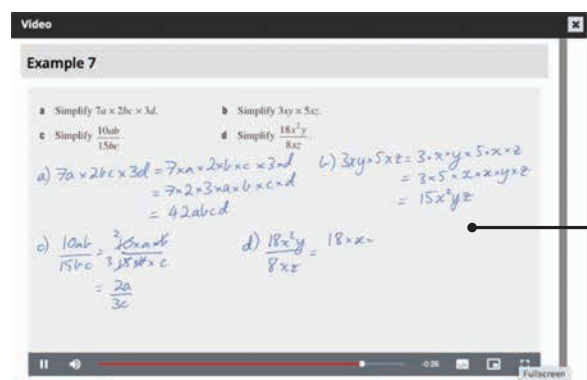 Video
Example 7
a Simplify 7a × 2bc × 3d.
b Simplify 3xy × 5xz.
c Simplify 10ab/15bc.
d Simplify 18x²y/8xz.
a) 7a × 2bc × 3d = 7×a×2×b×c×3×d
= 7×2×3×a×b×c×d
= 42abcd
b) 3xy × 5xz = 3×x×y×5×x×z
= 3×5×x×x×y×z
= 15x²yz
c) 10ab/15bc = 2 10×a×b/3 15×b×c
= 2a/3c
d) 18x²y/8xz = 18×x×
-0:26
Fullscreen